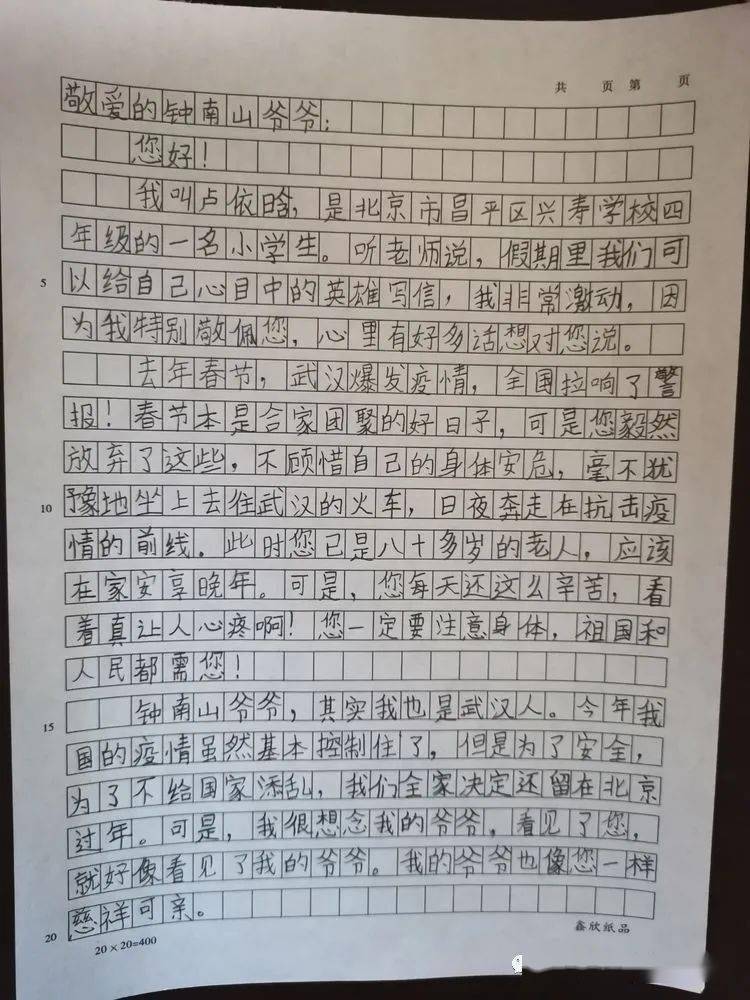 共 页 第 页
敬爱的钟南山爷爷：
您好！
我叫卢依晗，是北京市昌平区兴寿学校四
年级的一名小学生。听老师说，假期里我们可
5 以给自己心目中的英雄写信，我非常激动，因
为我特别敬佩您，心里有好多话想对您说。
去年春节，武汉爆发疫情，全国拉响了警
报！春节本是合家团聚的好日子，可是您毅然
放弃了这些，不顾惜自己的身体安危，毫不犹
10 豫地坐上去往武汉的火车，日夜奔走在抗击疫
情的前线。此时您已是八十多岁的老人，应该
在家安享晚年。可是，您每天还这么辛苦，看
着真让人心疼啊！您一定要注意身体，祖国和
人民都需您！
15 钟南山爷爷，其实我也是武汉人。今年我
国的疫情虽然基本控制住了，但是为了安全，
为了不给国家添乱，我们全家决定还留在北京
过年。可是，我很想念我的爷爷，看见了您，
就好像看见了我的爷爷。我的爷爷也像您一样
20 慈祥可亲。
20×20=400 鑫欣纸品